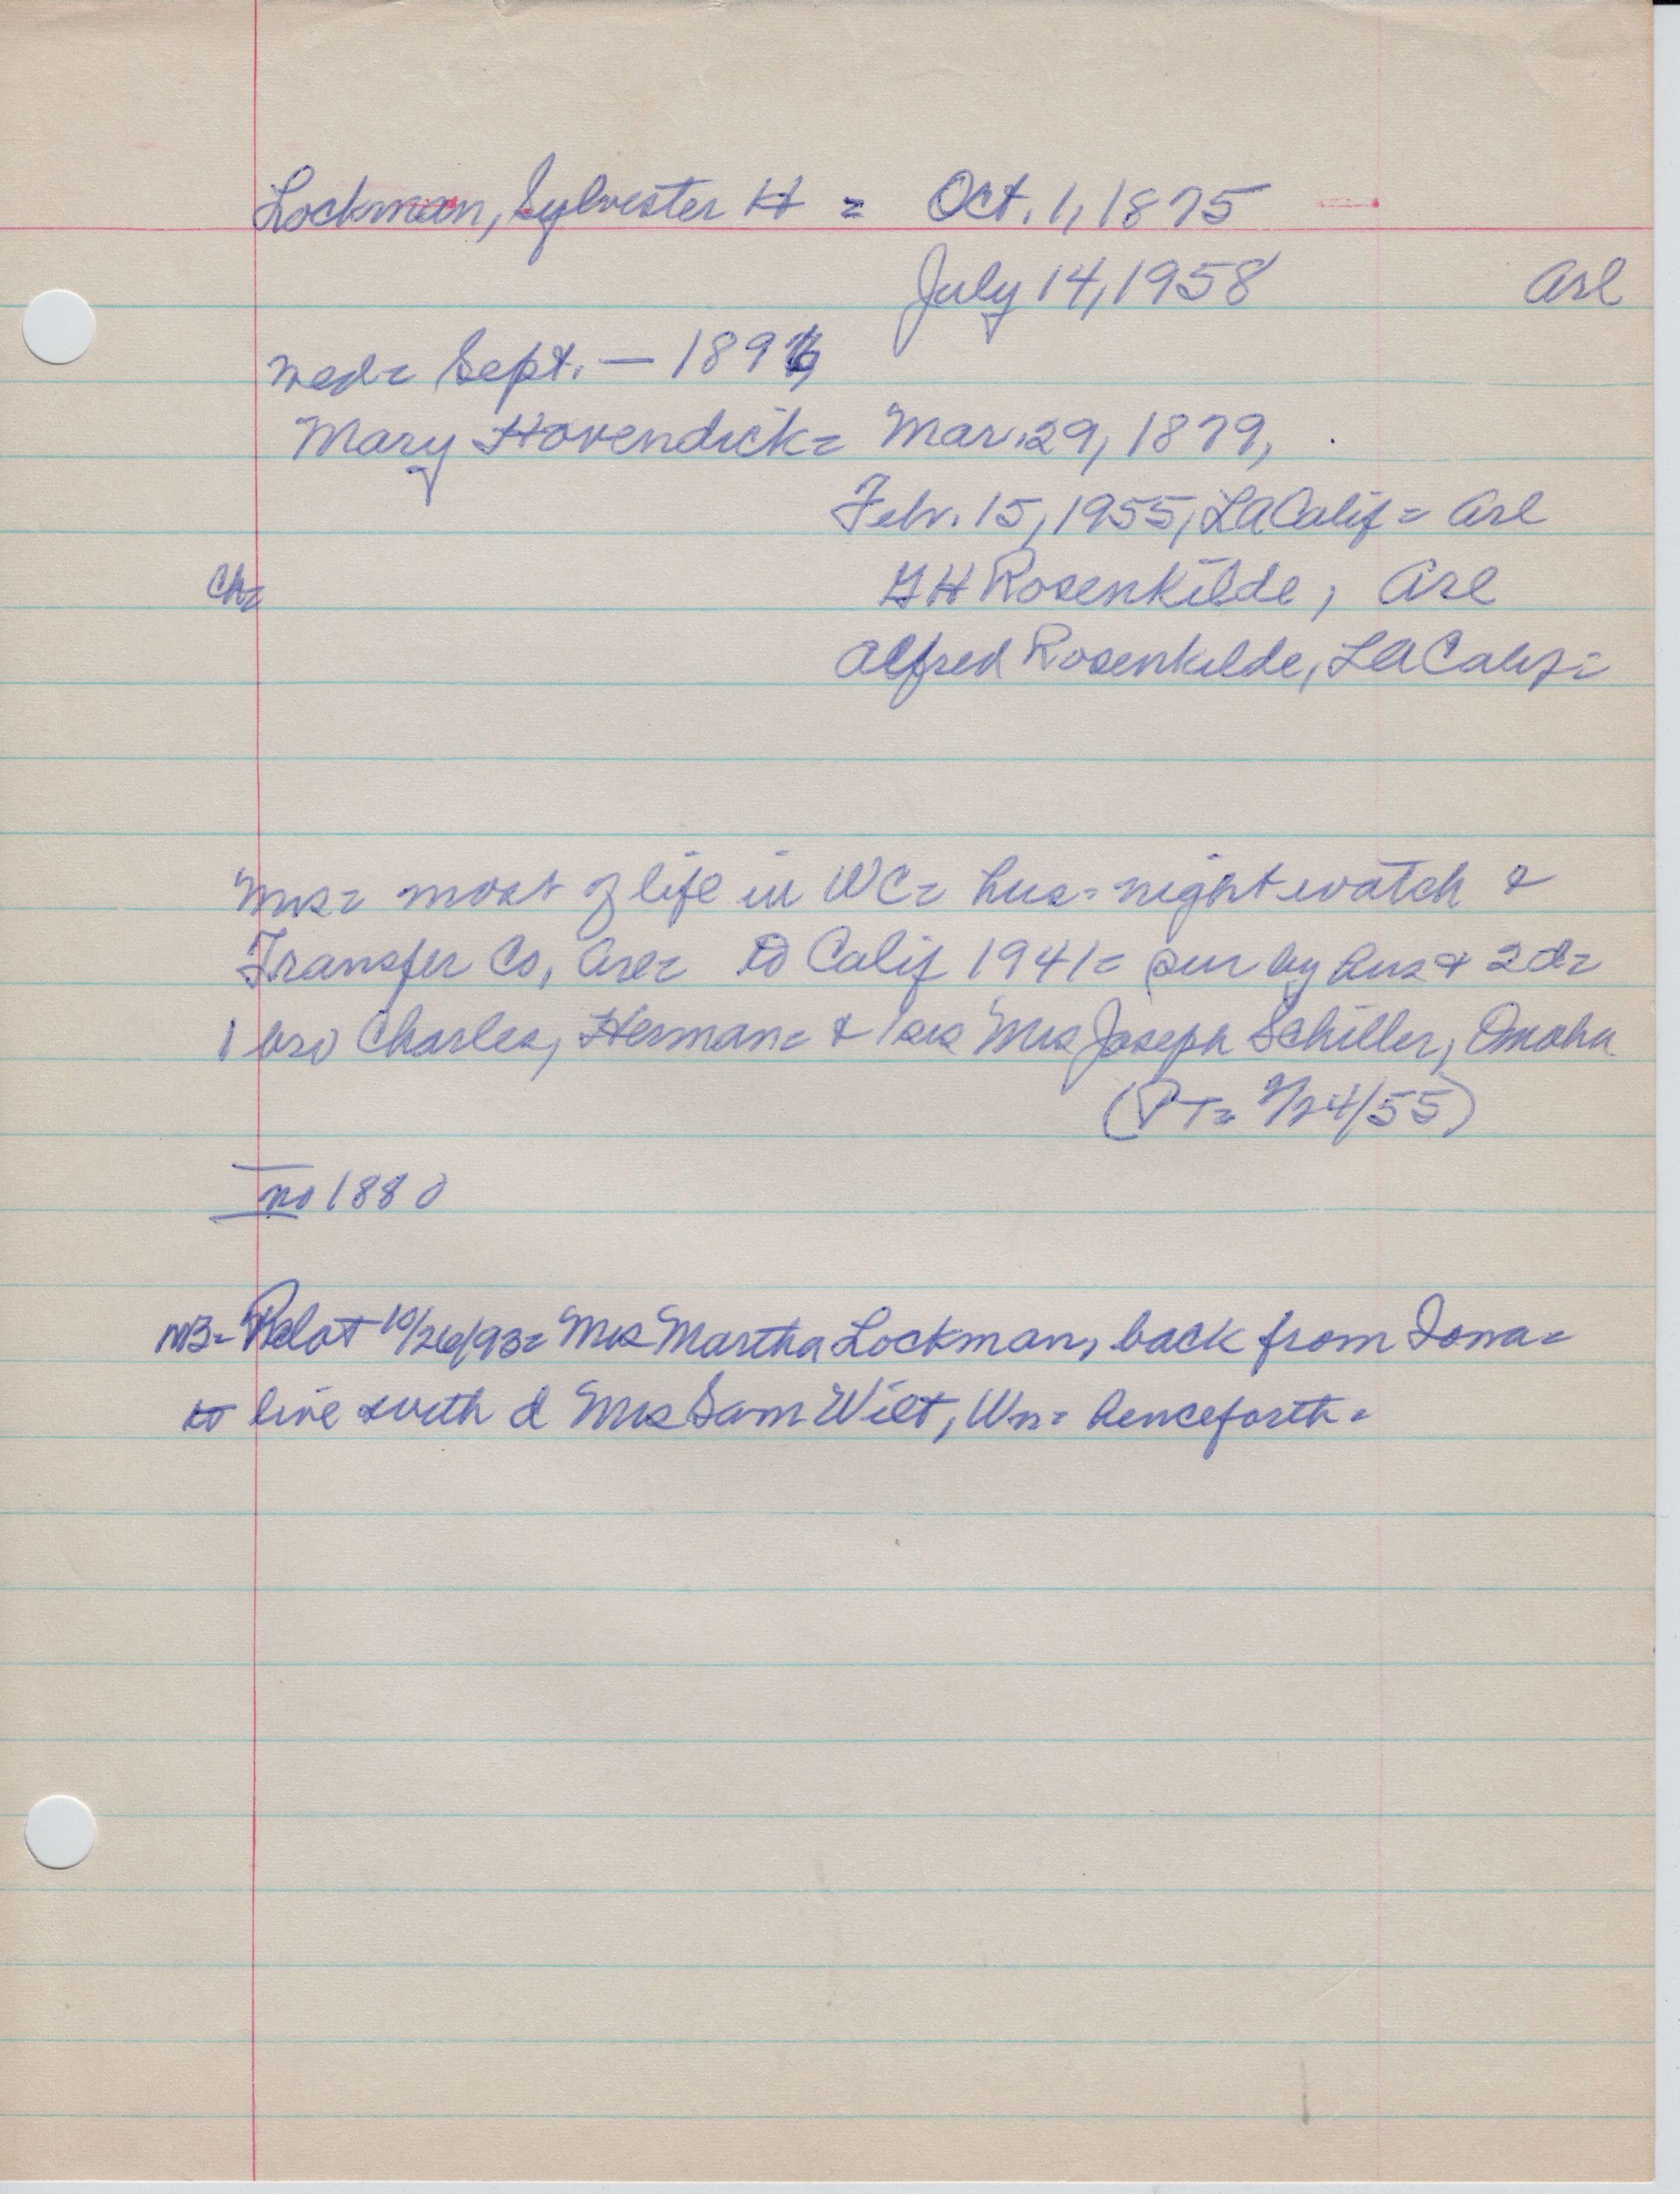 Lockman, Sylvester H = Oct. 1, 1875
July 14, 1958 Arl
wed= Sept. — 1896
Mary Hovendick= Mar. 29, 1879,
Febr. 15, 1955, LA Calif = Arl
Ch= G H Rosenkilde, Arl
Alfred Rosenkilde, LA Calif=
Mrs= most of life in WC= hus= night watch &
Transfer Co, Arl= to Calif 1941= sur by hus & 2 d=
1 bro Charles, Herman= & 1 sis Mrs Joseph Schiller, Omaha
(PT= 2/24/55)
no 1880
NB= Pilot 10/26/93= Mrs Martha Lockman, back from Iowa=
to live with d Mrs Sam Wilt, Wn= henceforth=